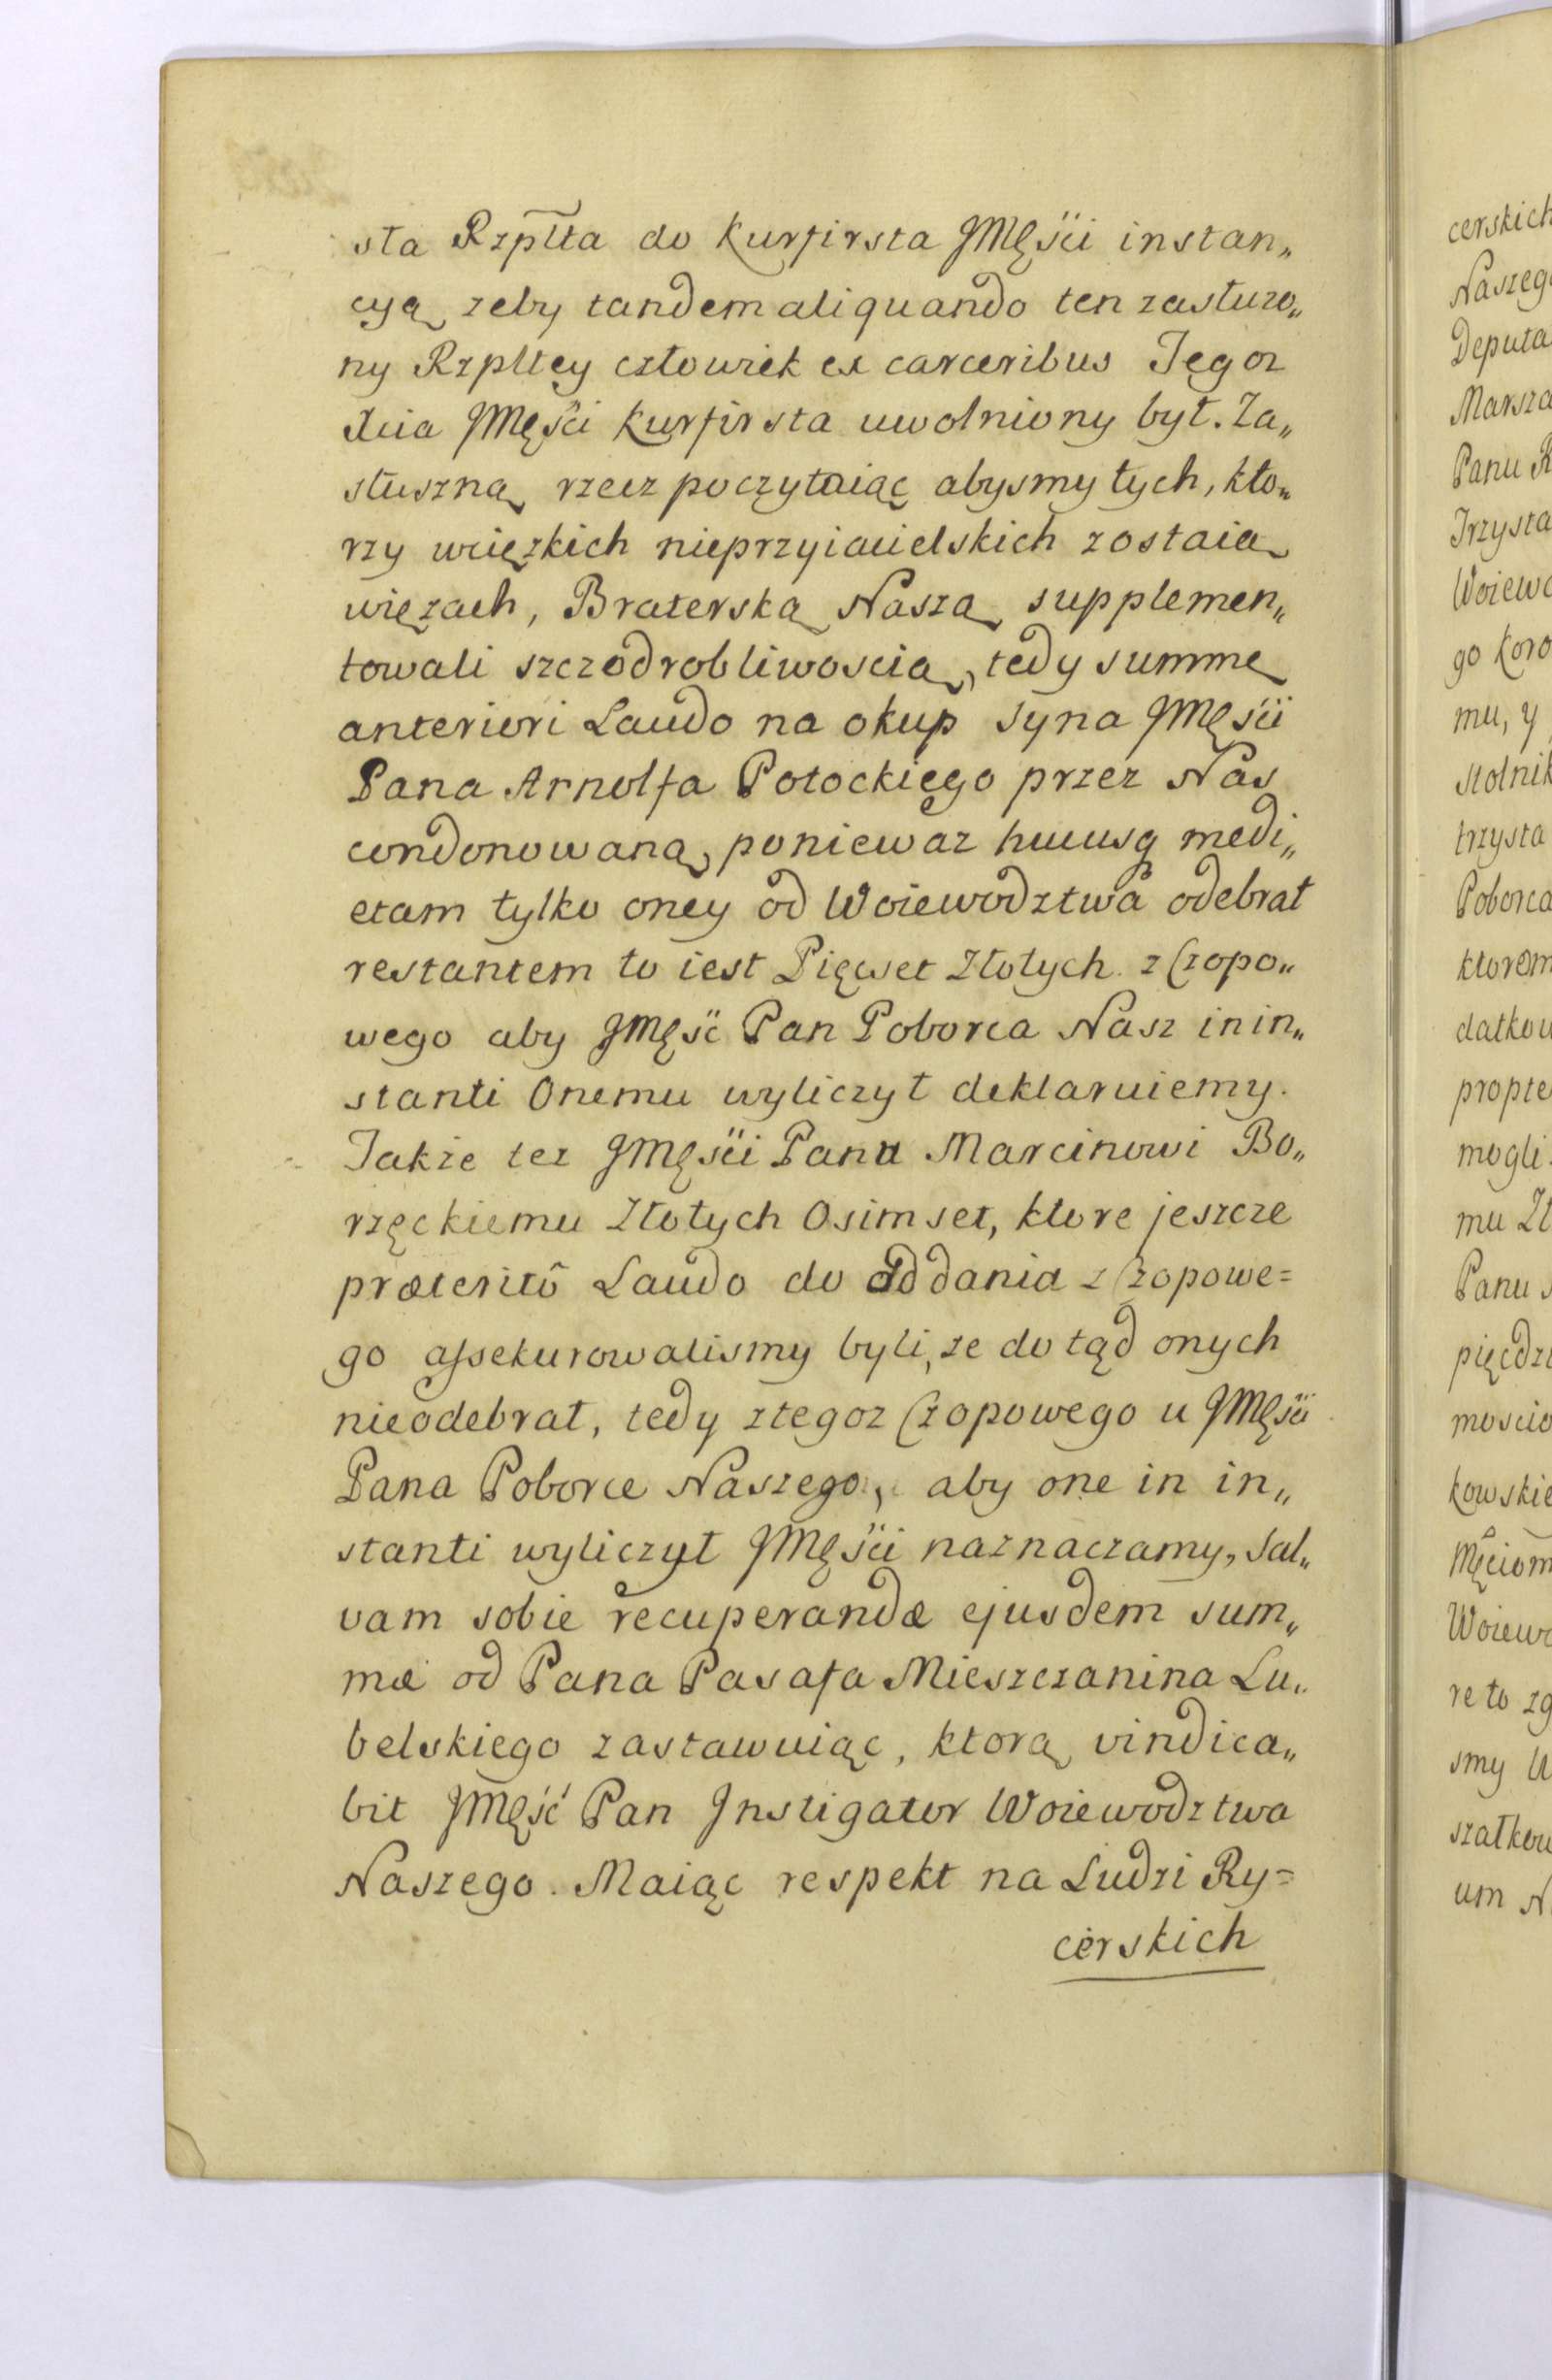 sła Rzpłta do Kurfirsta JMęści instan„
cyą zeby tandem aliquando ten zasłuzo„
ny Rzpltey człowiek ex carceribus Tegoz
Xcia JMęści Kurfirsta uwolniony był. Za„
słuszną rzecz poczytaiąc abysmy tych, kto„
rzy wcięzkich nieprzyiacielskich zostaią
więzach, Braterską Naszą supplemen„
towali szczodrobliwoscią, tedy summę
anteriori Laudo na okup Syna JMęści
Pana Arnolfa Potockiego przez Nas
condonowaną, poniewaz hucusq medi„
etam tylko oney od Woiewodztwa odebrał
restantem to iest Pięcset Złotych z Czopo„
wego aby JMęść Pan Poborca Nasz in in„
stanti Onemu wyliczył deklaruiemy.
Takze tez JMęści Panu Marcinowi Bo„
rzęckiemu Złotych Osimset, ktore jeszcze
præteritô Laudo do oddania z Czopowe=
go assekurowalismy byli, ze do tąd onych
nieodebrał, tedy z tegoz Czopowego u JMęści
Pana Poborce Naszego, aby one in in„
stanti wyliczył JMęści naznaczamy, sal„
vam sobie recuperandæ ejusdem sum„
mæ od Pana Pasafa Mieszczanina Lu„
belskiego zastawuiąc, ktorą vindica„
bit JMęść Pan Instigator Woiewodztwa
Naszego. Maiąc respekt na Ludzi Ry=
cerskich
cerskich
Naszego
Deputa
Marsza
Panu R
Trzysta
Woiewo
go Koro
mu, y
Stolnik
trzysta
Poborca
ktorem
datkow
propte
mogli
mu Zł
Panu
pięcdzi
moscio
kowskie
Męciom
Woiewo
re to zg
smy W
szałkow
um N